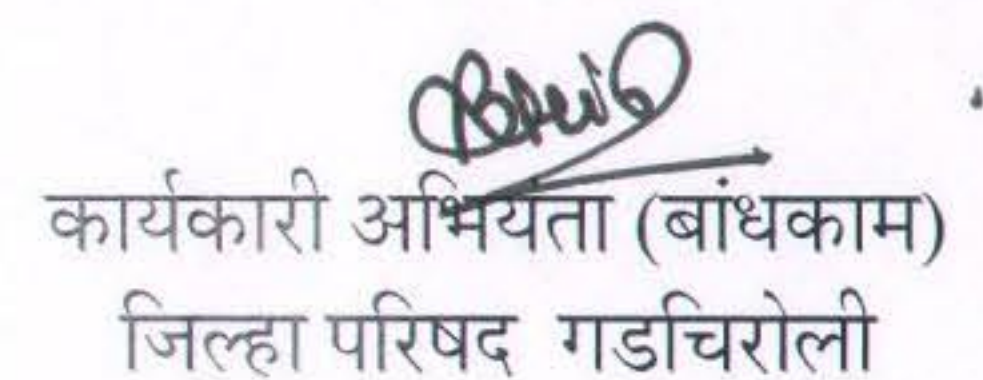 कार्यकारी अभियंता (बांधकाम)
जिल्हा परिषद गडचिरोली